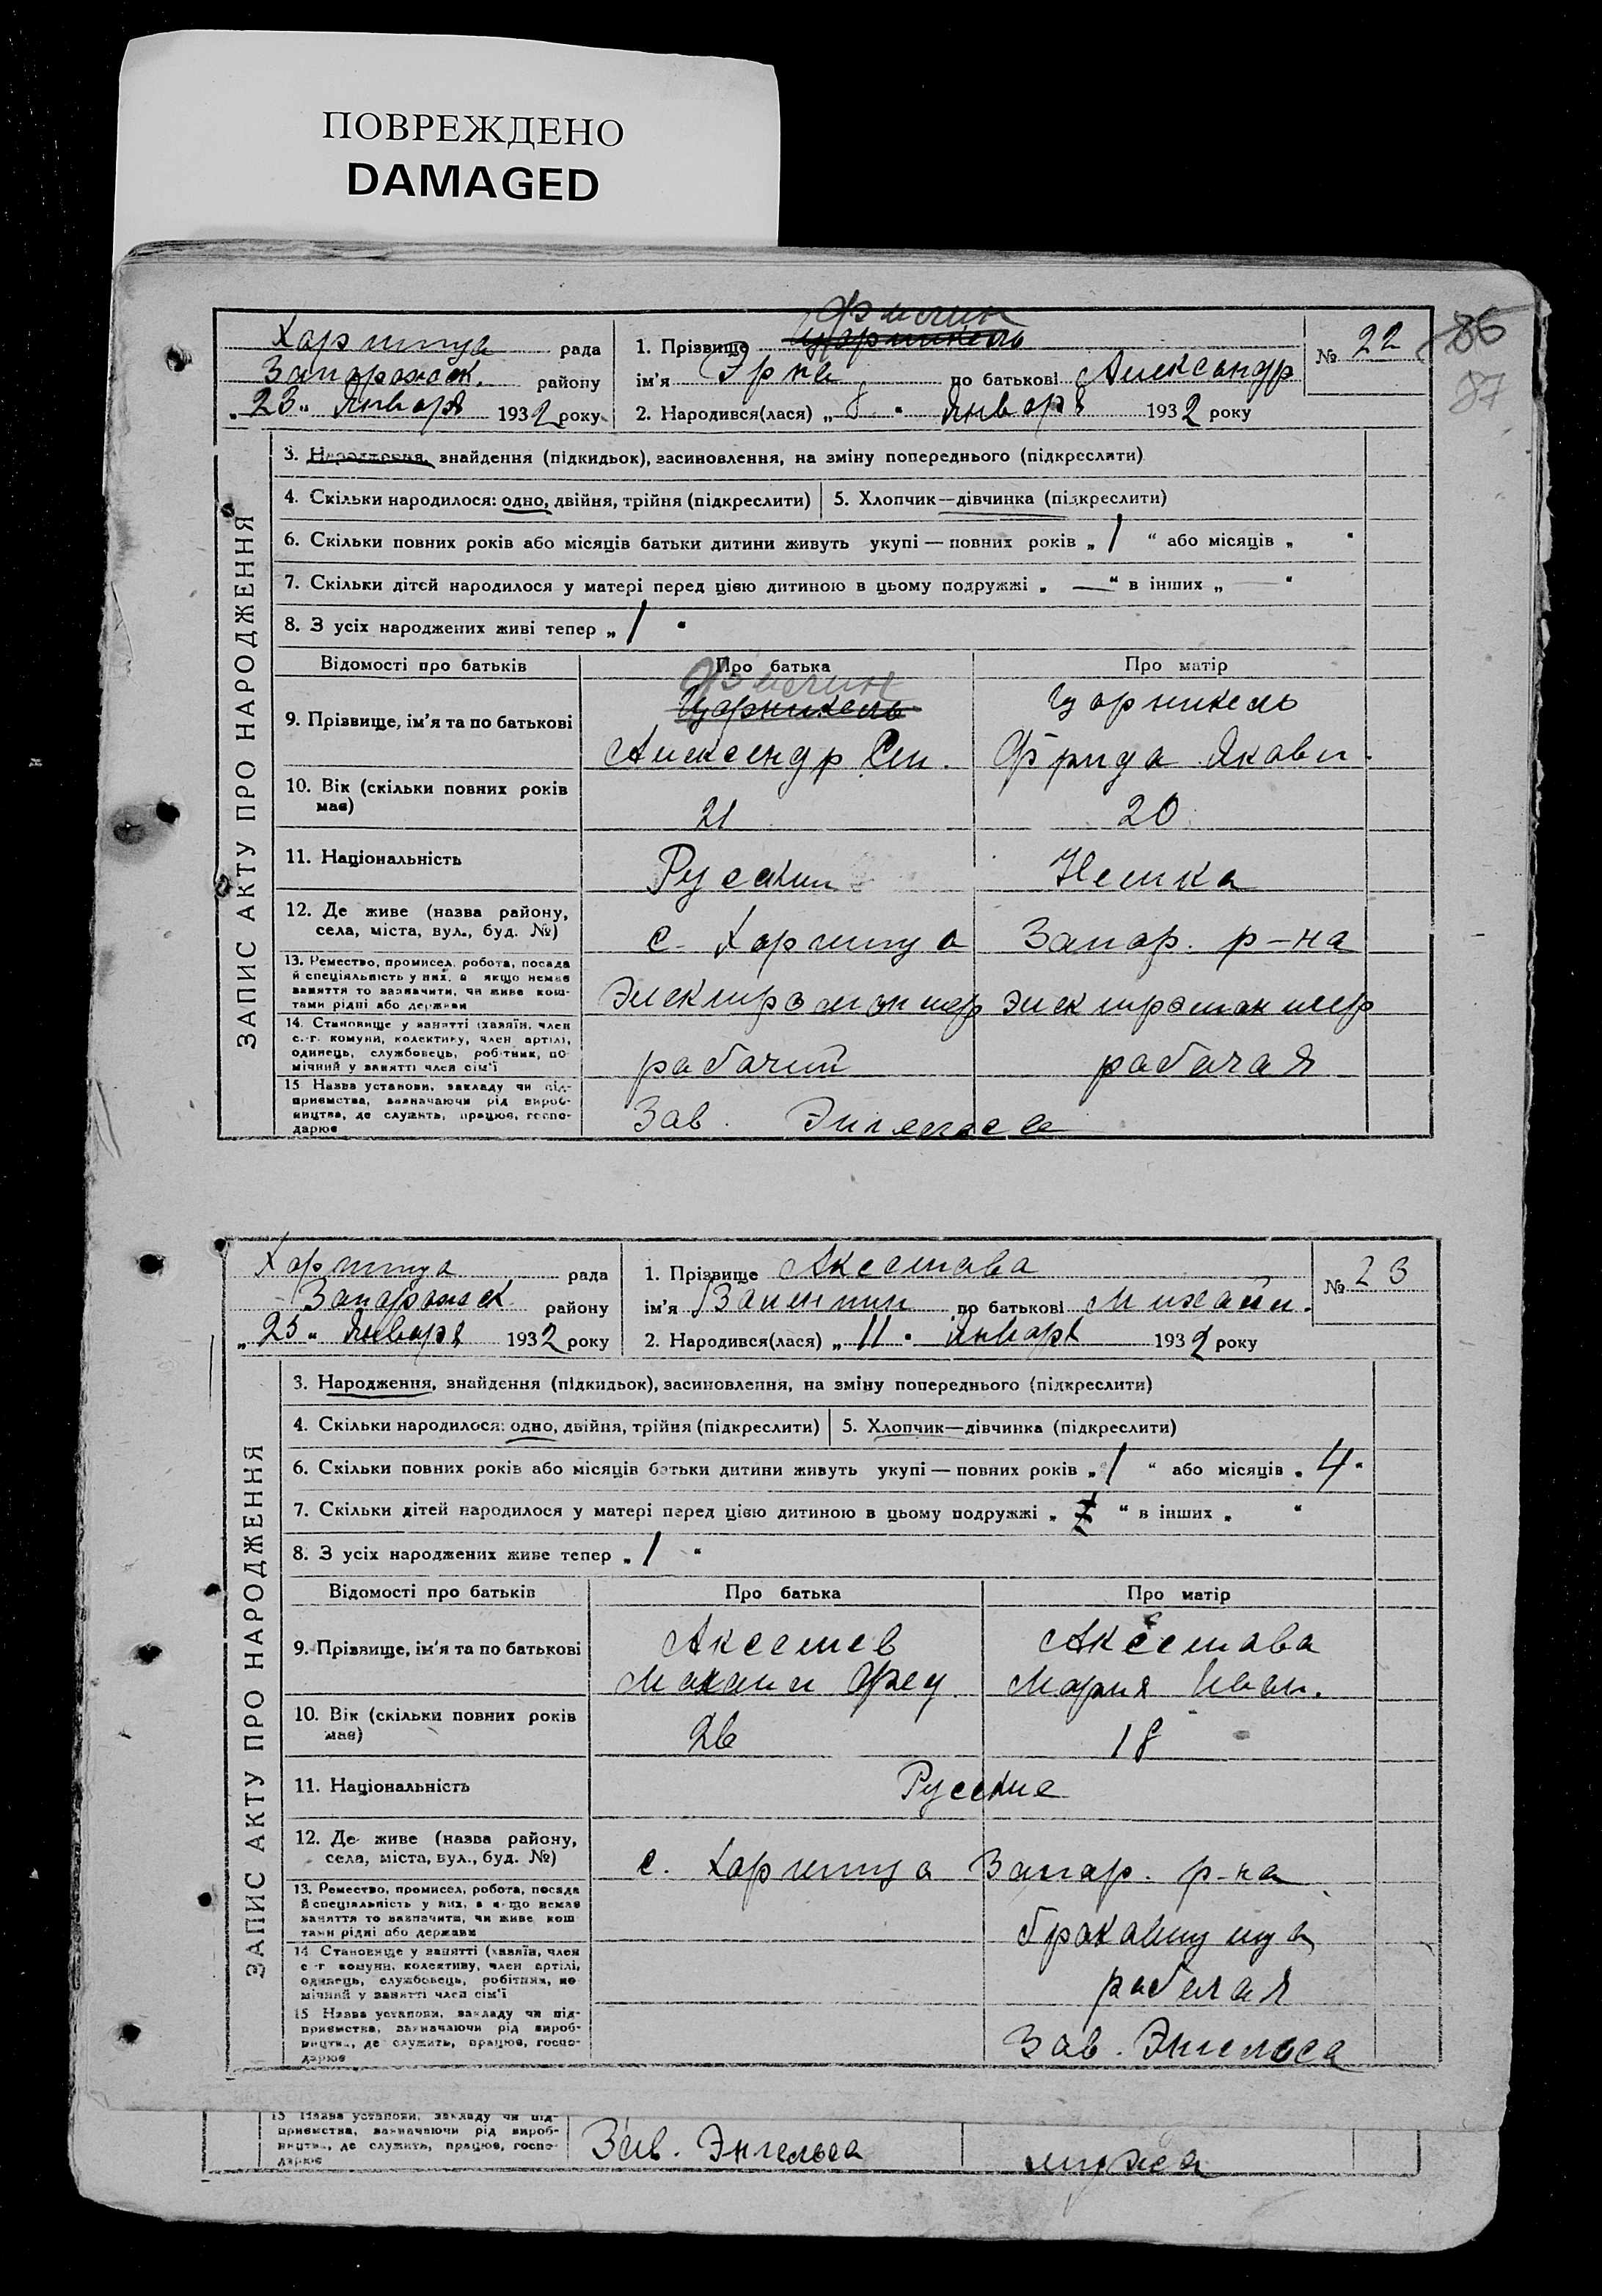 ПОВРЕЖДЕНО
DAMAGED
86
87
Хортица рада
Запорожск. району
„23" Января 1932 року
1. Прізвище Царникель
ім'я Эрна по батькові Александр
2. Народився(лася) „8" Января 1932 року
№ 22
ЗАПИС АКТУ ПРО НАРОДЖЕННЯ
3. Народження, знайдення (підкидьок), засиновлення, на зміну попереднього (підкреслити)
4. Скільки народилося: одно, двійня, трійня (підкреслити) 5. Хлопчик—дівчинка (підкреслити)
6. Скільки повних років або місяців батьки дитини живуть укупі — повних років „1" або місяців „ "
7. Скільки дітей народилося у матері перед цією дитиною в цьому подружжі „—" в інших „—"
8. З усіх народжених живі тепер „1"
Відомості про батьків Про батька Про матір
9. Прізвище, ім'я та по батькові
Царникель Царникель
Александр Фрида Яковл.
10. Вік (скільки повних років має)
21 20
11. Національність Русский Немка
12. Де живе (назва району, села, міста, вул., буд. №)
с. Хортица Запор. р-на
13. Ремество, промисел, робота, посада
й спеціяльність у них, а якщо немає
заняття то зазначити, чи живе кош-
тами рідні або держави
Электромонтер электромонтер
14. Становище у занятті (хазяїн, член
с.-г. комуни, колективу, член артілі,
одинець, службовець, робітник, по-
мічний у занятті член сім'ї
рабочий рабочая
15 Назва установи, закладу чи під-
приємства, зазначаючи рід вироб-
ництва, де служить, працює, госпо-
дарює
Зав. Энгельса
Хортица рада
Запорожск района
„25" Января 1932 року
1. Прізвище
ім'я по батькові Михайл.
2. Народився(лася) „11" Января 1932 року
№ 23
ЗАПИС АКТУ ПРО НАРОДЖЕННЯ
3. Народження, знайдення (підкидьок), засиновлення, на зміну попереднього (підкреслити)
4. Скільки народилося: одно, двійня, трійня (підкреслити) 5. Хлопчик—дівчинка (підкреслити)
6. Скільки повних років або місяців батьки дитини живуть укупі — повних років „1" або місяців „4"
7. Скільки дітей народилося у матері перед цією дитиною в цьому подружжі „ " в інших „ "
8. З усіх народжених живе тепер „1"
Відомості про батьків Про батька Про матір
9. Прізвище, ім'я та по батькові
Михаил Фед. Мария Иван.
10. Вік (скільки повних років має)
26 18
11. Національність Русские
12. Де живе (назва району, села, міста, вул., буд. №)
с. Хортица Запор. р-на
13. Ремество, промисел, робота, посада
й спеціяльність у них, а якщо немає
заняття то зазначити, чи живе кош-
тами рідні або держави
браковщица
14 Становище у занятті (хазяїн, член
с.-г комуни, колективу, член артілі,
одинець, службовець, робітник, по-
мічний у занятті член сім'ї
рабочая
15 Назва установи, закладу чи під-
приємства, зазначаючи рід вироб-
ництва, де служить, працює, госпо-
дарює
Зав. Энгельса
15 Назва установи, закладу чи під-
приємства, зазначаючи рід вироб-
ництва, де служить, працює, госпо-
дарює
Зав. Энгельса мужа